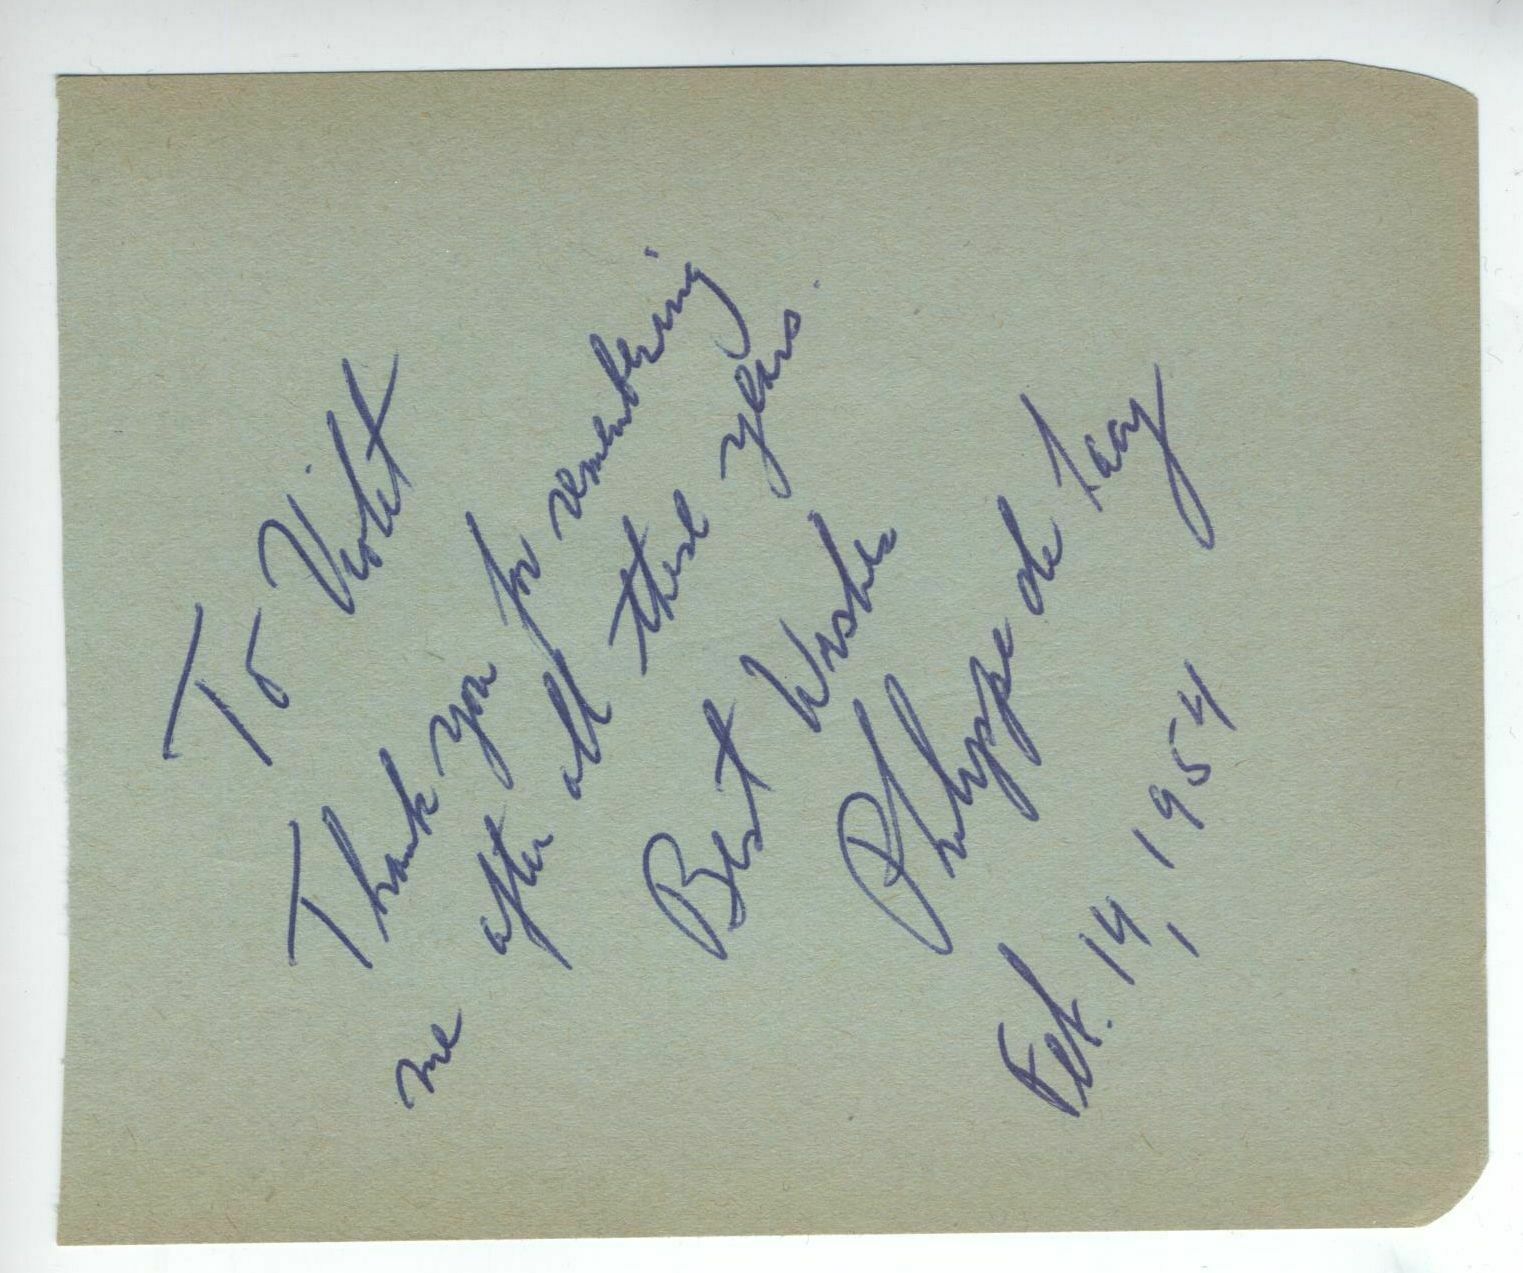 To Violet
Thank you for remembering
me after all these years.
Best Wishes
Philippe de Lacy
Feb. 14, 1954